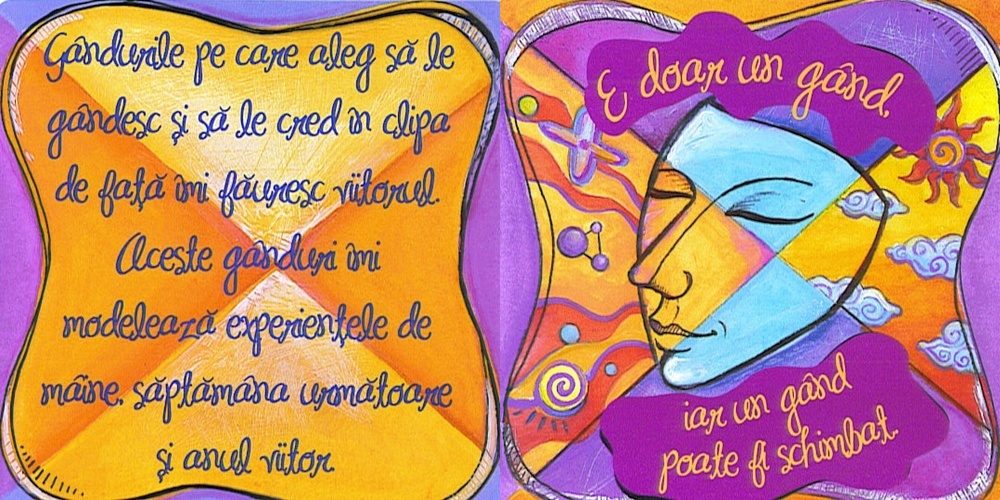 Gândurile pe care aleg să le
gândesc şi să le cred în clipa
de faţă îmi făuresc viitorul.
Aceste gânduri îmi
modelează experienţele de
mâine, săptămâna următoare
şi anul viitor.
E doar un gând,
iar un gând
poate fi schimbat.